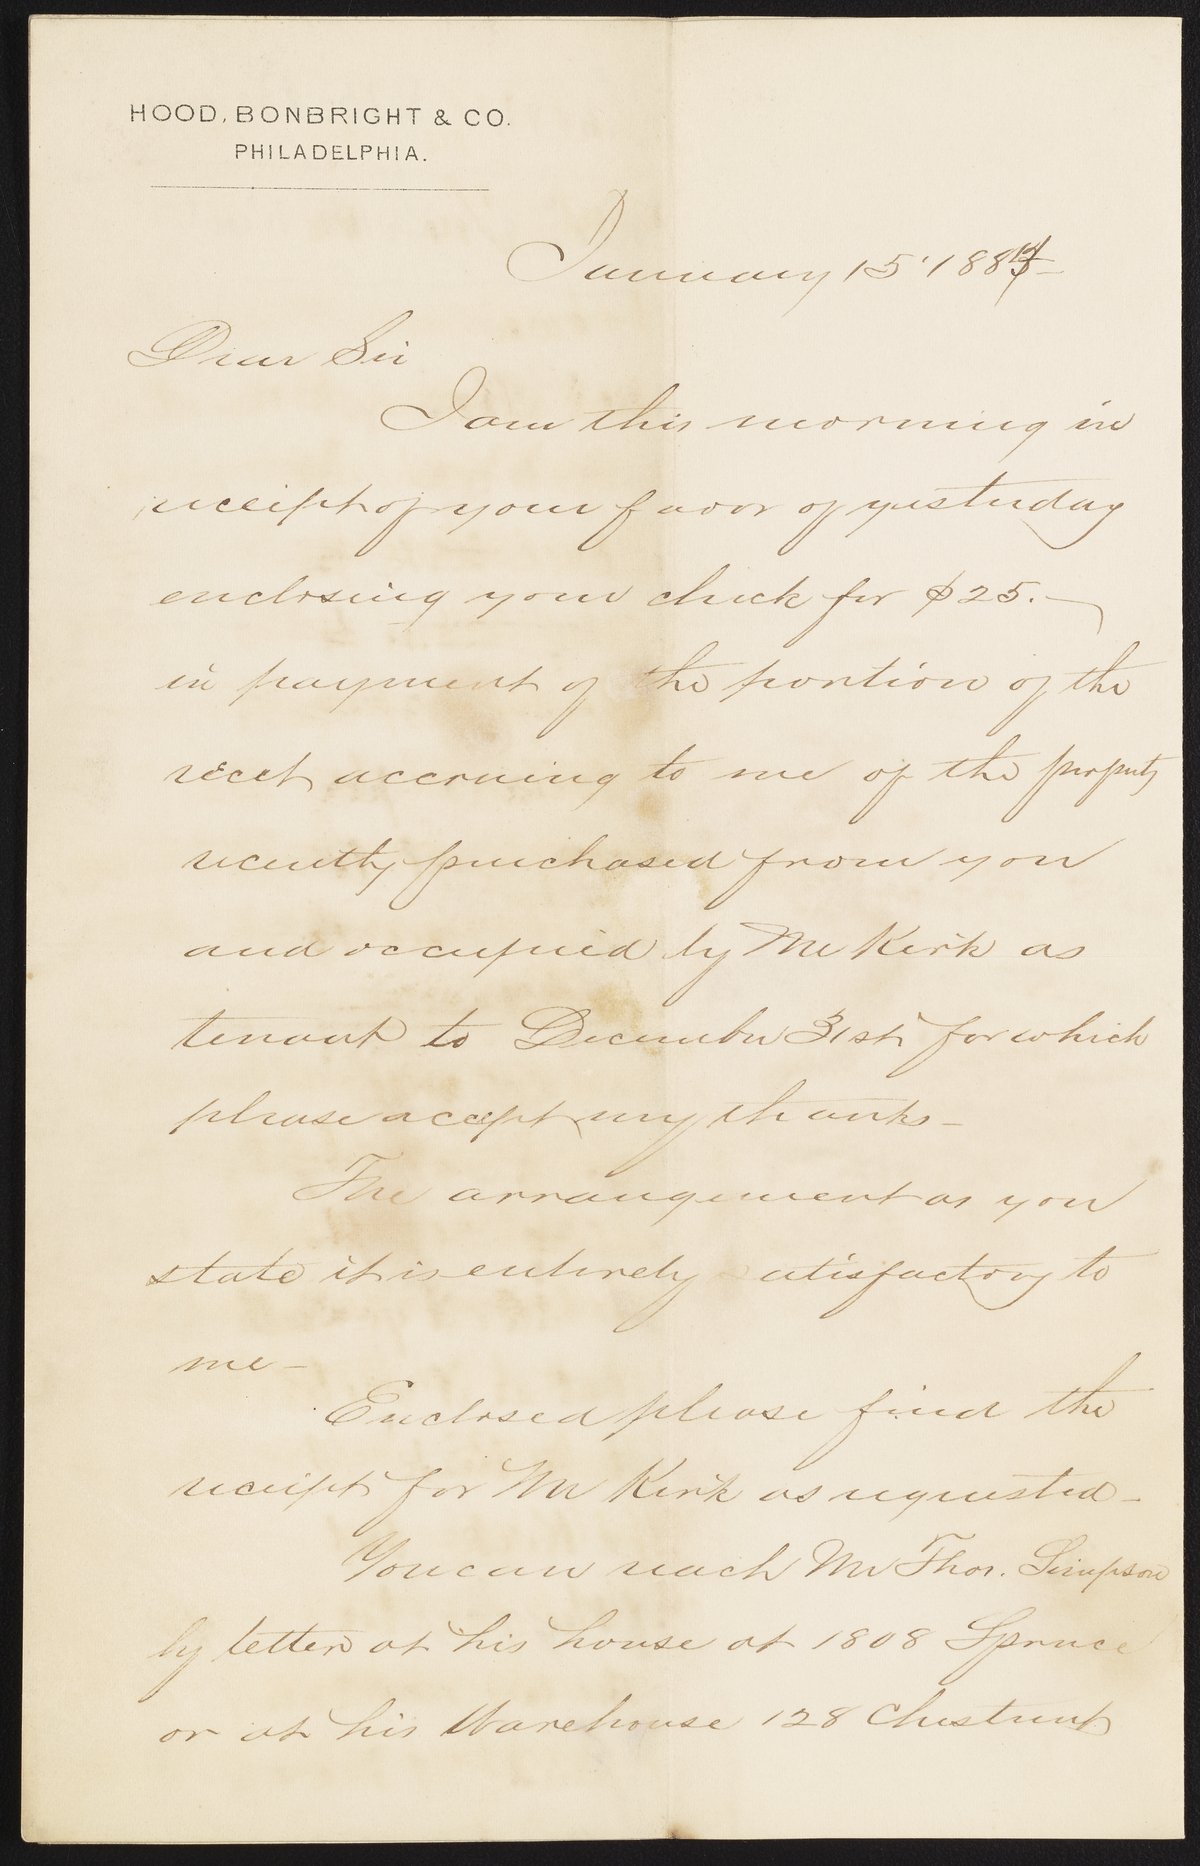 HOOD, BONBRIGHT & CO.
PHILADELPHIA.
January 15 1884
Dear Sir
I am this morning in
receipt of your favor of yesterday
enclosing your check for $25.—
in payment of the portion of the
rent accruing to me of the property
recently purchased from you
and occupied by Mr Kirk as
tenant to December 31st for which
please accept my thanks—
The arrangement as you
state it is entirely satisfactory to
me—
Enclosed please find the
receipt for Mr Kirk as requested—
You can reach Mr Thos. Simpson
by letter at his house at 1808 Spruce
or at his Warehouse 128 Chestnut